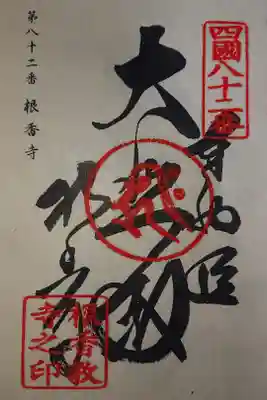 四國八十二番
大
根香寺
根香教
寺之印
第八十二番 根香寺